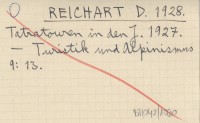 REICHART D. 1928.
Tatratouren in den J. 1927.
— Turistik und Alpinismus
9: 13.